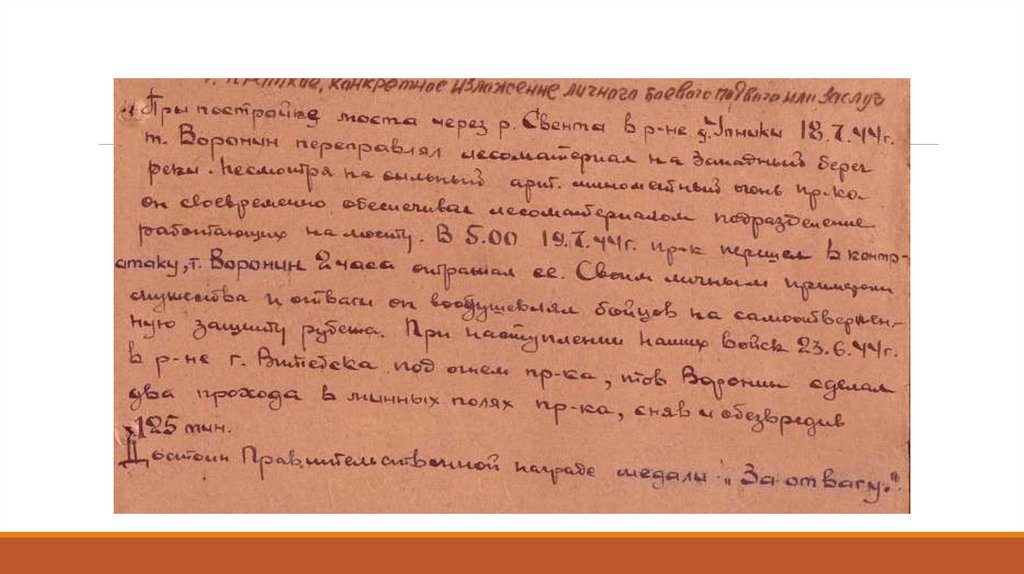 Краткое, конкретное изложение личного боевого подвига или заслуг
При постройке моста через р. Свента в р-не д. Упники 18.7.44г.
т. Воронин переправлял лесоматериал на западный берег
реки. Несмотря на сильный арт. минометный огонь пр-ка
он своевременно обеспечивал лесоматериалом подразделение
работающих на мосту. В 5.00 19.7.44г. пр-к перешел в контр-
атаку, т. Воронин 2 часа отражал ее. Своим личным примером
мужества и отваги он воодушевлял бойцов на самоотвержен-
ную защиту рубежа. При наступлении наших войск 23.6.44г.
в р-не г. Витебска под огнем пр-ка, тов Воронин сделал
два прохода в минных полях пр-ка, сняв и обезвредив
125 мин.
Достоин Правительственной награде медали "За отвагу."